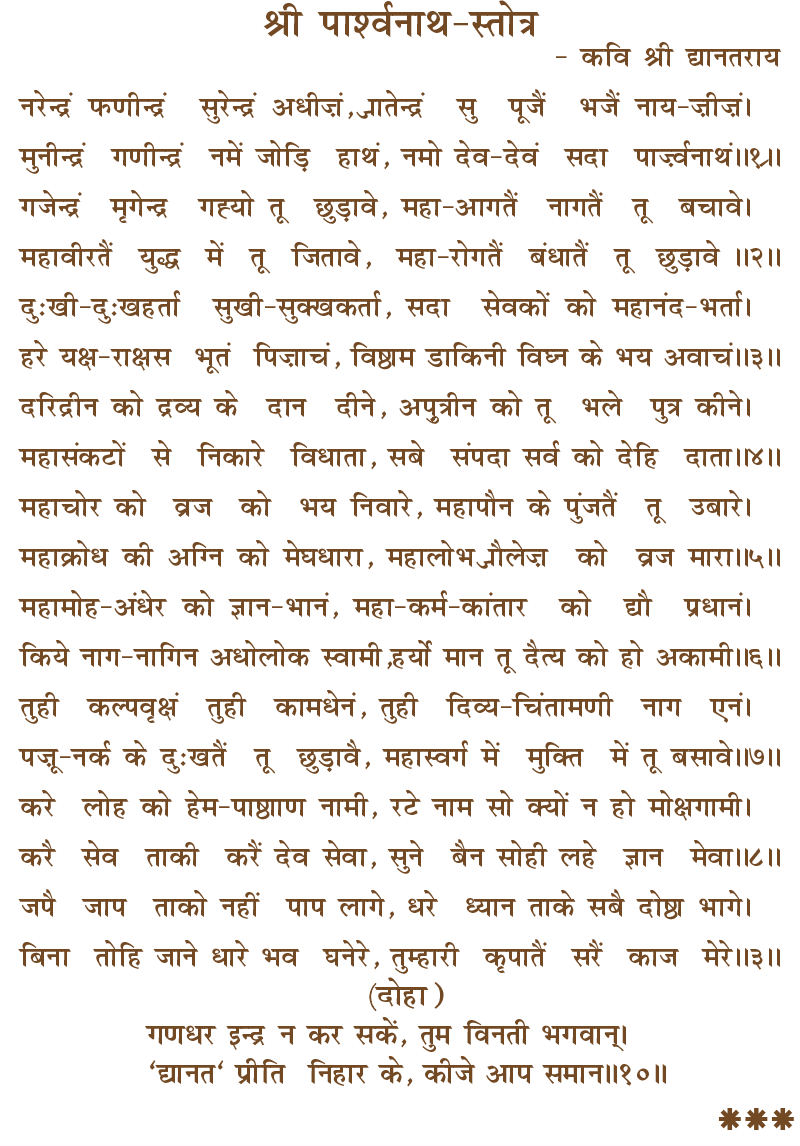 श्री पार्श्वनाथ-स्तोत्र
- कवि श्री द्यानतराय
नरेन्द्रं फणीन्द्रं सुरेन्द्रं अधीज़ं, ातेन्द्रं सु पूजैं भजैं नाय-ज़ीज़ं।
मुनीन्द्रं गणीन्द्रं नमें जोड़ि हाथं, नमो देव-देवं सदा पार्ज़्वनाथं॥१॥
गजेन्द्रं मृगेन्द्र गह्यो तू छुड़ावे, महा-आगतैं नागतैं तू बचावे।
महावीरतैं युद्ध में तू जितावे, महा-रोगतैं बंधातैं तू छुड़ावे ॥२॥
दुःखी-दुःखहर्ता सुखी-सुक्खकर्ता, सदा सेवकों को महानंद-भर्ता।
हरे यक्ष-राक्षस भूतं पिज़ाचं, विष्ठाम डाकिनी विघ्न के भय अवाचं॥३॥
दरिद्रीन को द्रव्य के दान दीने, अपुत्रीन को तू भले पुत्र कीने।
महासंकटों से निकारे विधाता, सबे संपदा सर्व को देहि दाता॥४॥
महाचोर को व्रज को भय निवारे, महापौन के पुंजतैं तू उबारे।
महाक्रोध की अग्नि को मेघधारा, महालोभ ौलेज़ को व्रज मारा॥५॥
महामोह-अंधेर को ज्ञान-भानं, महा-कर्म-कांतार को द्यौ प्रधानं।
किये नाग-नागिन अधोलोक स्वामी,हर्यो मान तू दैत्य को हो अकामी॥६॥
तुही कल्पवृक्षं तुही कामधेनं, तुही दिव्य-चिंतामणी नाग एनं।
पज़ू-नर्क के दुःखतैं तू छुड़ावै, महास्वर्ग में मुक्ति में तू बसावे॥७॥
करे लोह को हेम-पाष्ठाण नामी, रटे नाम सो क्यों न हो मोक्षगामी।
करै सेव ताकी करैं देव सेवा, सुने बैन सोही लहे ज्ञान मेवा॥८॥
जपै जाप ताको नहीं पाप लागे, धरे ध्यान ताके सबै दोष्ठा भागे।
बिना तोहि जाने धारे भव घनेरे, तुम्हारी कृपातैं सरैं काज मेरे॥३॥
(दोहा)
गणधर इन्द्र न कर सकें, तुम विनती भगवान्।
‘द्यानत‘ प्रीति निहार के, कीजे आप समान॥१०॥